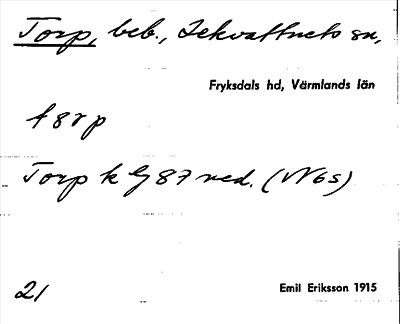 Torp, beb., Lekvattnets sn,
Fryksdals hd, Värmlands län
Torp k Lj 87 ned. (VV6s)
21
Emil Eriksson 1915